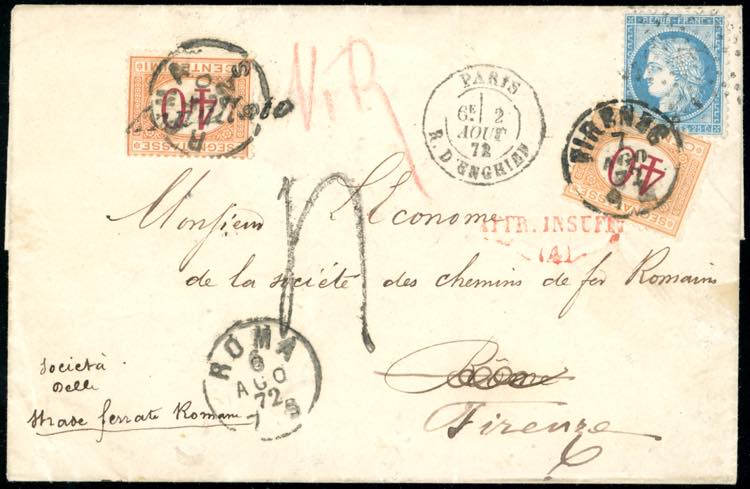 REPUB. FRANC.
25 C
SEGNATASSE
40
CENTESIMI
40
SEGNATASSE
PARIS
6E 2
AOUT
72
R. D'ENGHIEN
FIRENZE
7
AGO
ROMA
6
AGO
72
7 S
AFFR. INSUFF.
(A)
Monsieur L'Économe
de la société des chemins de fer Romains
Rome
Firenze
Società
Delle
Strade ferrate Romane